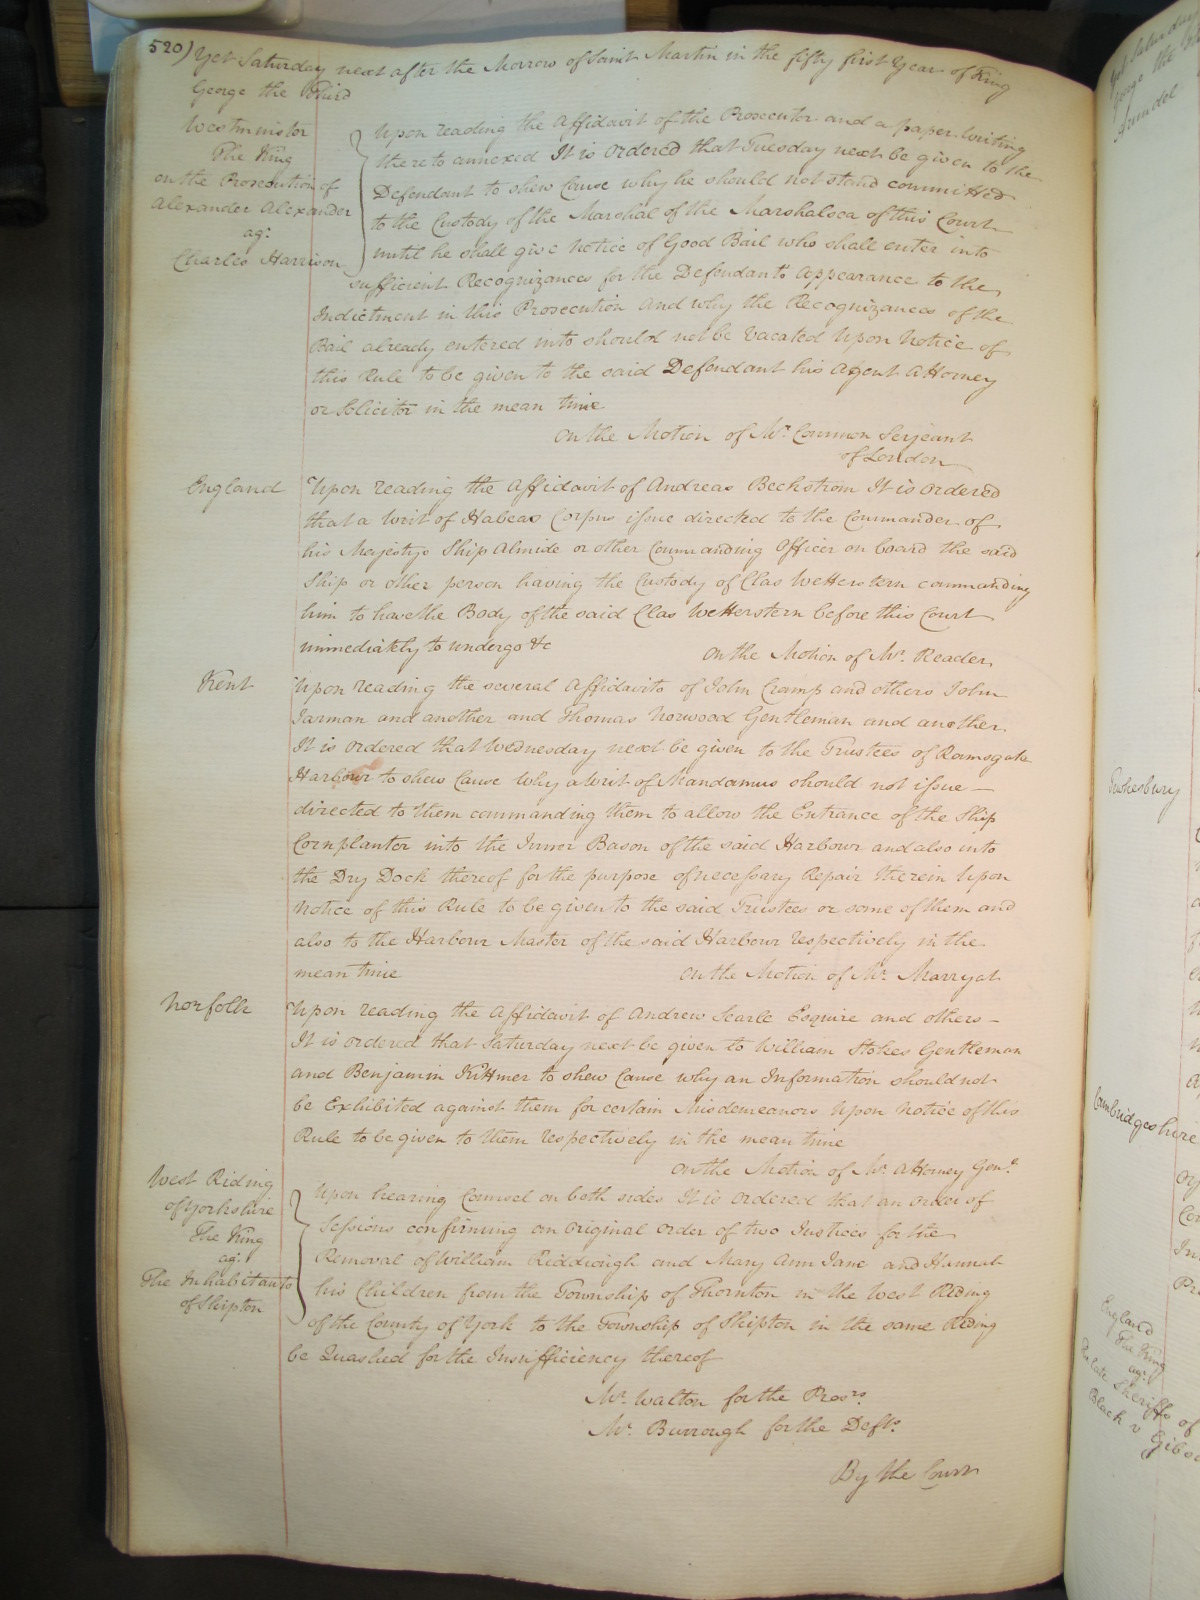 520) Yet Saturday next after the Morrow of Saint Martin in the fifty first Year of King
George the Third
Westminster
The King
on the Prosecution of
Alexander Alexander
agt
Charles Harrison
Upon reading the Affidavit of the Prosecutor and a paper writing
thereto annexed It is Ordered that Tuesday next be given to the
Defendant to shew Cause why he should not stand committed
to the Custody of the Marshal of the Marshalsea of this Court
until he shall give Notice of Good Bail who shall enter into
sufficient Recognizances for the Defendants Appearance to the
Indictment in this Prosecution and why the Recognizances of the
Bail already entered into should not be vacated Upon Notice of
this Rule to be given to the said Defendant his Agent Attorney
or Solicitor in the mean time
On the Motion of Mr. Common Serjeant
of London
England
Upon reading the Affidavit of Andreas Beckstrom It is ordered
that a Writ of Habeas Corpus issue directed to the Commander of
his Majestys Ship Almide or other Commanding Officer on board the said
Ship or other person having the Custody of Clas Wetterstern commanding
him to have the Body of the said Clas Wetterstern before this Court
immediately to undergo &c
On the Motion of Mr. Reader
Kent
Upon reading the several Affidavits of John Cramp and others John
Jarman and another and Thomas Norwood Gentleman and another
It is ordered that Wednesday next be given to the Trustees of Ramsgate
Harbour to shew Cause why a Writ of Mandamus should not issue —
directed to them commanding them to allow the Entrance of the Ship
Cornplanter into the Inner Bason of the said Harbour and also into
the Dry Dock thereof for the purpose of necessary Repair therein Upon
Notice of this Rule to be given to the said Trustees or some of them and
also to the Harbour Master of the said Harbour respectively in the
mean time
On the Motion of Mr. Marryat
Norfolk
Upon reading the Affidavit of Andrew Searle Esquire and others —
It is ordered that Saturday next be given to William Stokes Gentleman
and Benjamin Kittmer to shew Cause why an Information should not
be Exhibited against them for certain Misdemeanors Upon Notice of this
Rule to be given to them respectively in the mean time
On the Motion of Mr. Attorney Genl.
West Riding
of Yorkshire
The King
agt
The Inhabitants
of Skipton
Upon hearing Counsel on both sides It is Ordered that an Order of
Sessions confirming an Original Order of two Justices for the
Removal of William Riddiough and Mary Ann Jane and Hannah
his Children from the Township of Thornton in the West Riding
of the County of York to the Township of Skipton in the same Riding
be Quashed for the Insufficiency thereof
Mr. Walton for the Prosrs.
Mr. Burrough for the Defts.
By the Court
Yet Saturday
George the
Arundel
Tewkesbury
Cambridgeshire
England
The King
agt
The late Sheriffs of
Black v